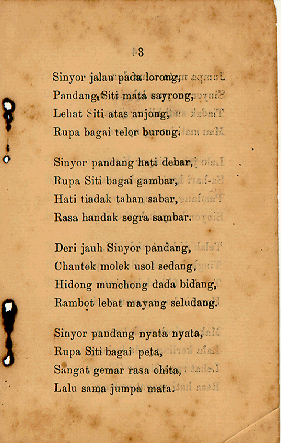 3
Sinyor jalan pada lorong,
Pandang Siti mata sayrong,
Lehat Siti atas anjong,
Rupa bagai telor burong.
Sinyor pandang hati debar,
Rupa Siti bagai gambar,
Hati tiadak tahan sabar,
Rasa handak segra sambar.
Deri jauh Sinyor pandang,
Chantek molek usol sedang,
Hidong munchong dada bidang,
Rambot lebat mayang seludang.
Sinyor pandang nyata nyata,
Rupa Siti bagai peta,
Sangat gemar rasa chita,
Lalu sama jumpa mata.